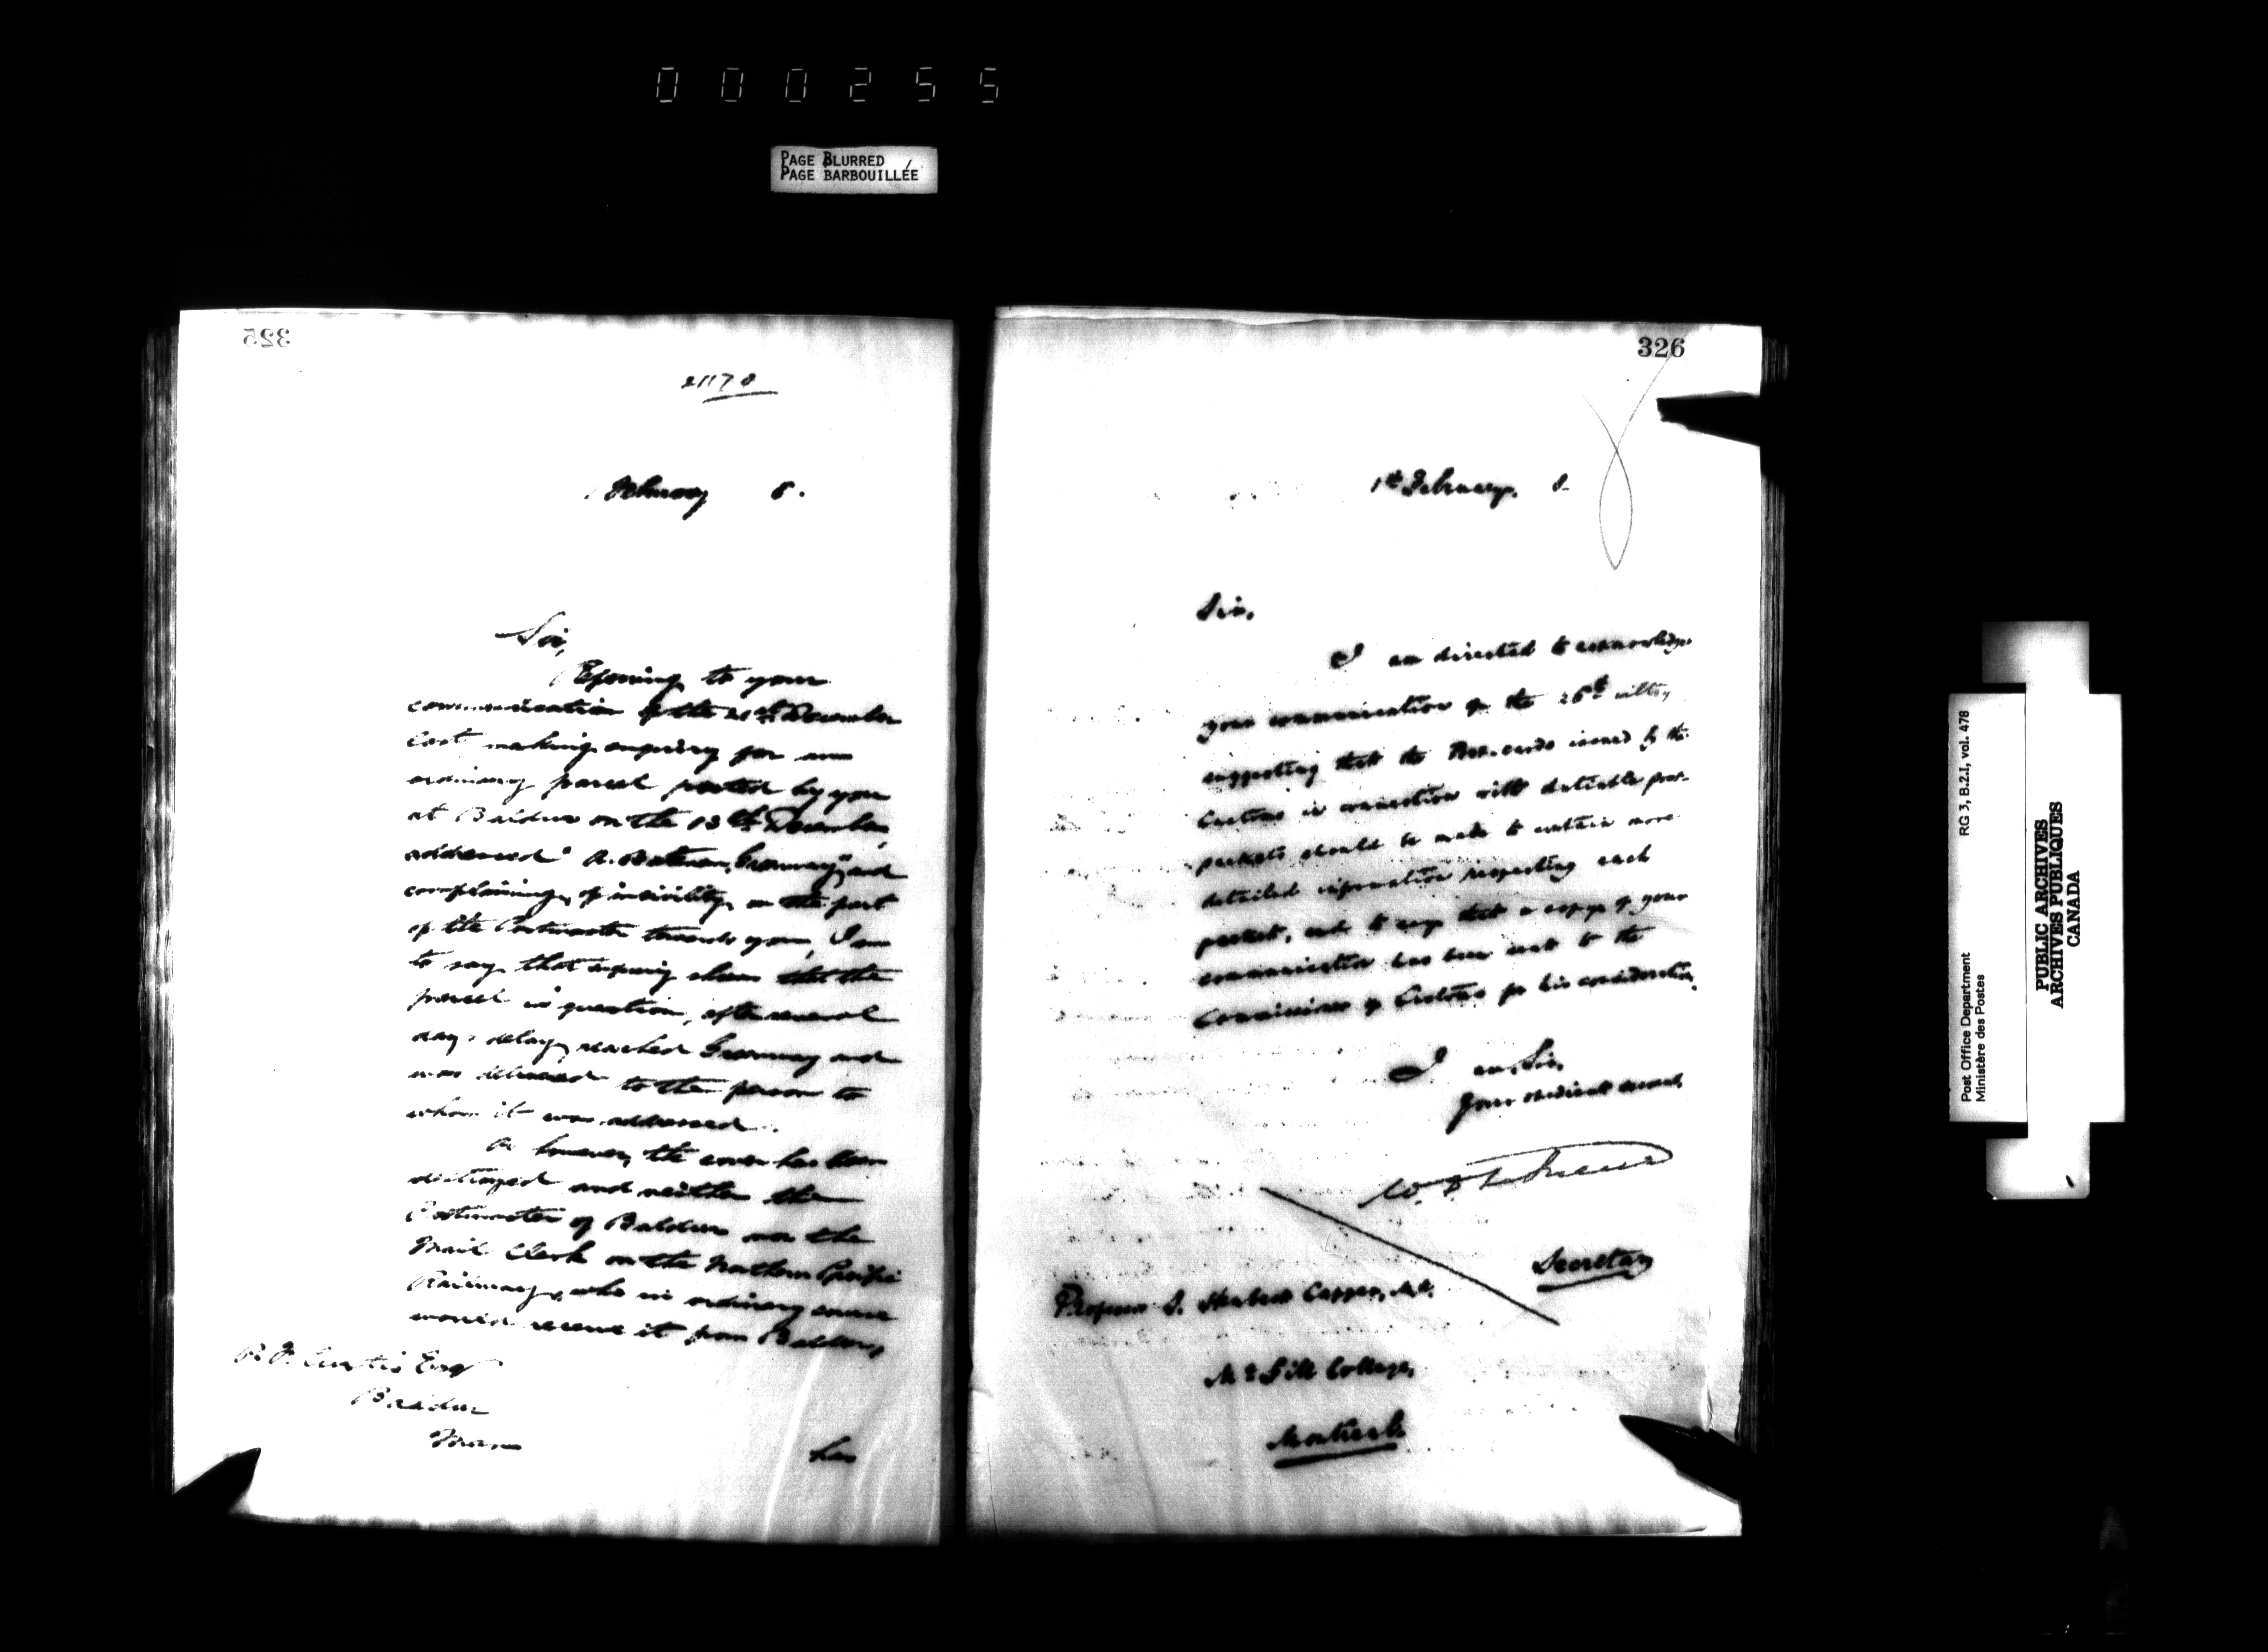 000255
PAGE BLURRED
PAGE BARBOUILLÉE
325
21178
1 February 8.
Sir,
Referring to your
communication of the 21st December
last making enquiry for an
ordinary parcel posted by you
at Baldur on the 13th December,
addressed "R. Bateman, Greenway," and
complaining of incivility on the part
of the Postmaster towards you, I am
to say that inquiry shows that the
parcel in question, after several
days delay, reached Greenway and
was delivered to the person to
whom it was addressed.
As however, the cover has been
destroyed and neither the
Postmaster of Baldur nor the
Mail Clerk on the Northern Pacific
Railway, who in ordinary course
would receive it from Baldur,
R. F. Curtis Esq
Baldur
Man
has
326
1st February, 8
Sir,
I am directed to acknowledge
your communication of the 26th ulto,
suggesting that the Post-cards issued by the
Customs in connection with dutiable post-
packets should be made to contain more
detailed information respecting each
packet, and to say that a copy of your
communication has been sent to the
Commissioner of Customs for his consideration.
I am, Sir,
Your obedient servant,
W. D. LeSueur
Secretary
Professor S. Henbest Capper, M.A.
McGill College,
Montreal.
Post Office Department
Ministère des Postes
RG 3, B.2.I, vol. 478
PUBLIC ARCHIVES
ARCHIVES PUBLIQUES
CANADA